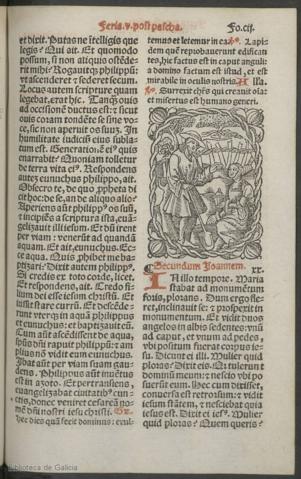 Feria.v.post pascha.
Fo.cij.
et dixit. Putas ne ītelligis que
legis? Qui ait. Et quomodo
possum, si non aliquis ostēde-
rit mihi? Rogavitqȝ philippū:
vt ascenderet ⁊ sederet secum.
Locus autem scripture quam
legebat, erat hic. Tanqȝ ouis
ad occisionē ductus est: ⁊ sicut
ouis coram tondēte se sine vo-
ce, sic non aperuit os suuȝ. In
humilitate iudiciū eius subla-
tum est. Generationē eius quis
enarrabit? Quoniam tolletur
de terra vita eius. Respondens
autē eunuchus philippo, ait.
Obsecro te, de quo ,ppheta di
cit hoc: de se, an de aliquo alio?
Aperiens aūt philippus os suū,
⁊ incipiēs a scriptura ista, euā-
gelizauit illi iesum. Et dū irent
per viam: venerūt ad quandā
aquam. Et ait eunuchus. Ec-
ce aqua. Quis ,phibet me ba-
ptizari? Dixit autem philippus.
Si credis ex toto corde, licet.
Et respondens, ait. Credo fi-
lium dei esse iesum christū. Et
iussit stare currū. Et descēde-
runt vterqȝ in aquā philippus
et eunuchus: et baptizauit eū.
Cum aūt ascēdisset de aqua,
spūs dn̄i rapuit philippū: ⁊ am
plius nō vidit eum eunuchus.
Ibat aūt per viam suam gau-
dens. Philippus aūt inuētus
est in azoto. Et pertransiens,
euangelizabat ciuitatibus cun-
ctis, donec veniret cesareā no-
mine dn̄i nostri iesu christi. Gr.
Hec dies quā fecit dominus: exul-
temus et letemur in ea. ℣. La-
pidem quē reprobauerunt edifican
tes, hic factus est in caput anguli:
a domino factum est istud, et est
mirabile in oculis nostris. Alla.
℣. Surrexit chr̄s qui creauit oīa:
et misertus est humano generi.
Secundum Joannem. xx.
In illo tempore. Maria
stabat ad monumentum
foris, plorans. Dum ergo fle-
ret, inclinauit se: ⁊ prospexit in
monumentum. Et vidit duos
angelos in albis sedentes: vnū
ad caput, et vnum ad pedes,
vbi positum fuerat corpus ie-
su. Dicunt ei illi. Mulier quid
ploras? Dixit eis. Quia tulerunt
dominū meum: ⁊ nescio vbi po
suerūt eum. Hec cum dixisset,
conuersa est retrorsum: ⁊ vidit
iesum stātem, ⁊ nesciebat quia
iesus est. Dicit ei iesus. Mulier
quid ploras? Quem queris?
Biblioteca de Galicia